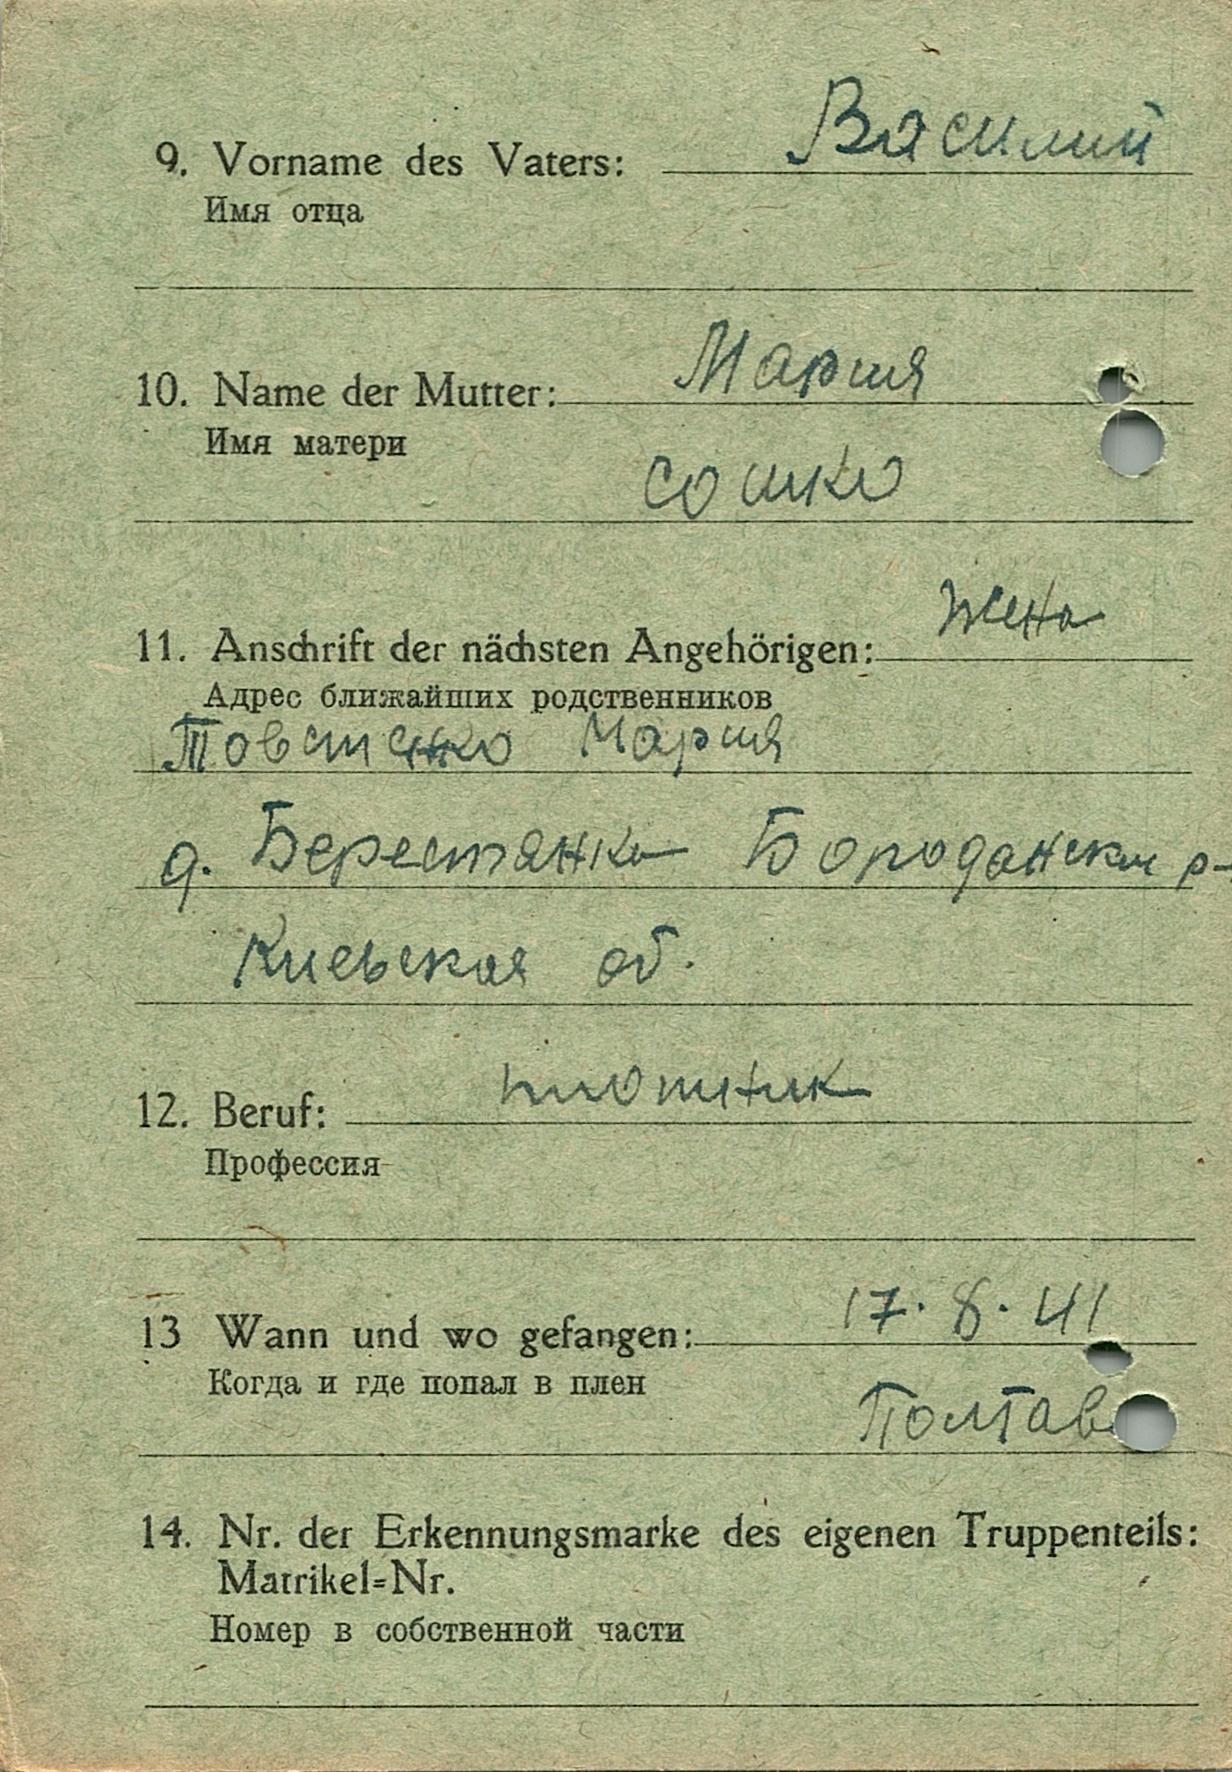 9. Vorname des Vaters: Василий
Имя отца
10. Name der Mutter: Мария
Имя матери
сошко
11. Anschrift der nächsten Angehörigen: Жена
Адрес ближайших родственников
Товстенко Мария
д. Берестянка Бороданский р-
Киевская об.
12. Beruf: плотник
Профессия
13 Wann und wo gefangen: 17. 8. 41
Когда и где попал в плен
Полтав
14. Nr. der Erkennungsmarke des eigenen Truppenteils:
Matrikel=Nr.
Номер в собственной части